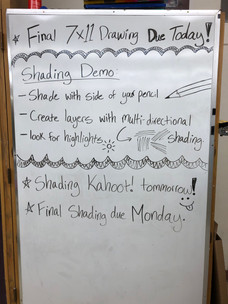 Final 7x11 Drawing Due Today!
Shading Demo:
- Shade with side of your pencil
- Create layers with multi-directional
shading.
- look for highlights
Shading Kahoot! tommorrow!
Final Shading due Monday.